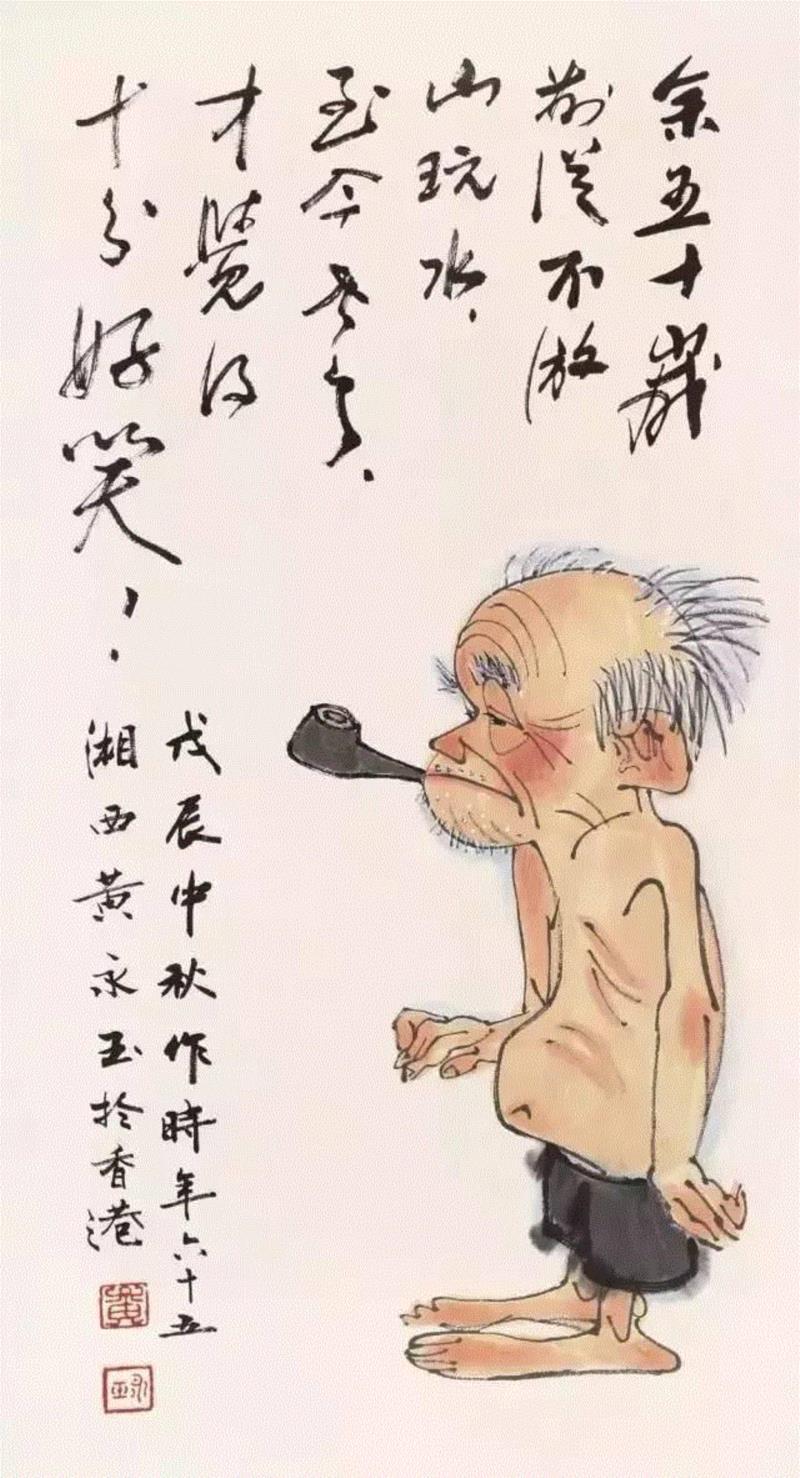 余五十歲
前從不游
山玩水，
至今老了，
才覺得
十分好笑！
戊辰中秋作時年六十五
湘西黃永玉於香港
黃
永玉